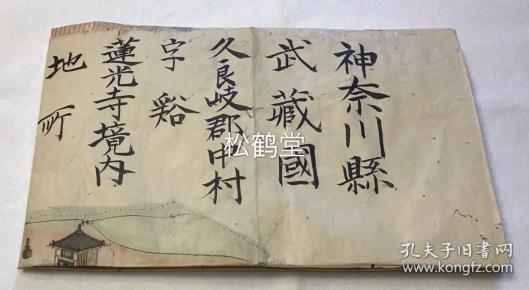 神奈川縣
武藏國
久良岐郡中村
字谿
蓮光寺境内
地所
松鹤堂
孔夫子旧书网
www.kongfz.com